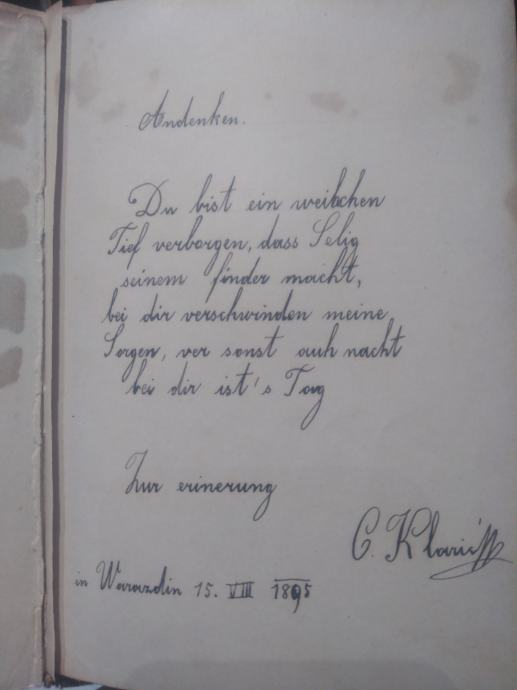 Andenken.
Du bist ein weibchen
Tief verborgen, dass Selig
seinem finder macht,
bei dir verschwinden meine
Sorgen, ver sonst auh nacht
bei dir ist's Tag
Zur erinerung
C. Klarić
in Warazdin 15. VIII 1895